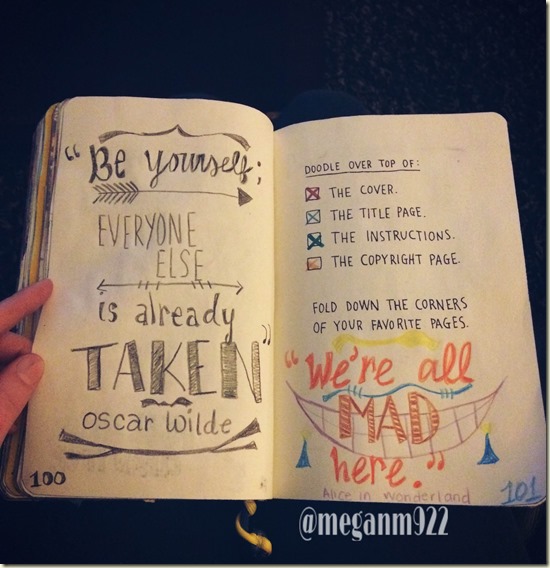 “Be yourself;
EVERYONE
ELSE
is already
TAKEN”
oscar wilde
100
DOODLE OVER TOP OF:
THE COVER.
THE TITLE PAGE.
THE INSTRUCTIONS.
THE COPYRIGHT PAGE.
FOLD DOWN THE CORNERS
OF YOUR FAVORITE PAGES.
“We're all
MAD
here.”
Alice in Wonderland
101
@meganm922